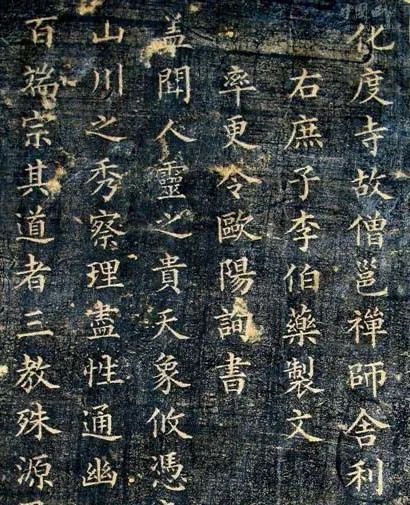 化度寺故僧邕禪師舍利
右庶子李伯藥製文
率更令歐陽詢書
盖聞人靈之貴天象攸憑
山川之秀察理盡性通幽
百端宗其道者三教殊源